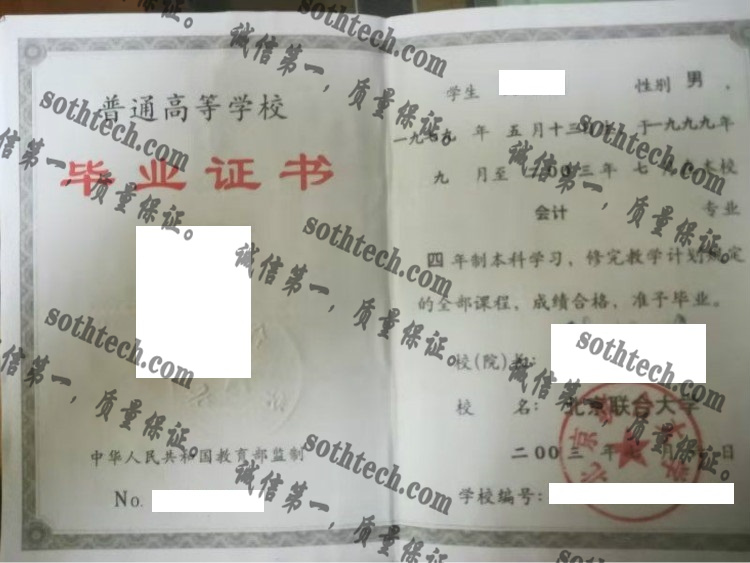 普通高等学校
毕业证书
中华人民共和国教育部监制
No.
学生 性别 男 ,
一九七九 年 五 月 十三 于一九九九年
九 月至 二00三 年 七 本校
会计 专业
四 年制本科学习，修完教学计划 定
的全部课程，成绩合格，准予毕业。
校(院)长:
校 名: 北京联合大学
二00三 年 七 八 日
学校编号:
sothtech.com
诚信第一，质量保证。
sothtech.com
诚信第一，质量保证。
sothtech.com
诚信第一，质量保证。
sothtech.com
诚信第一，质量保证。
sothtech.com
诚信第一，质量保证。
sothtech.com
诚信第一，质量保证。
sothtech.com
诚信第一，质量保证。
sothtech.com